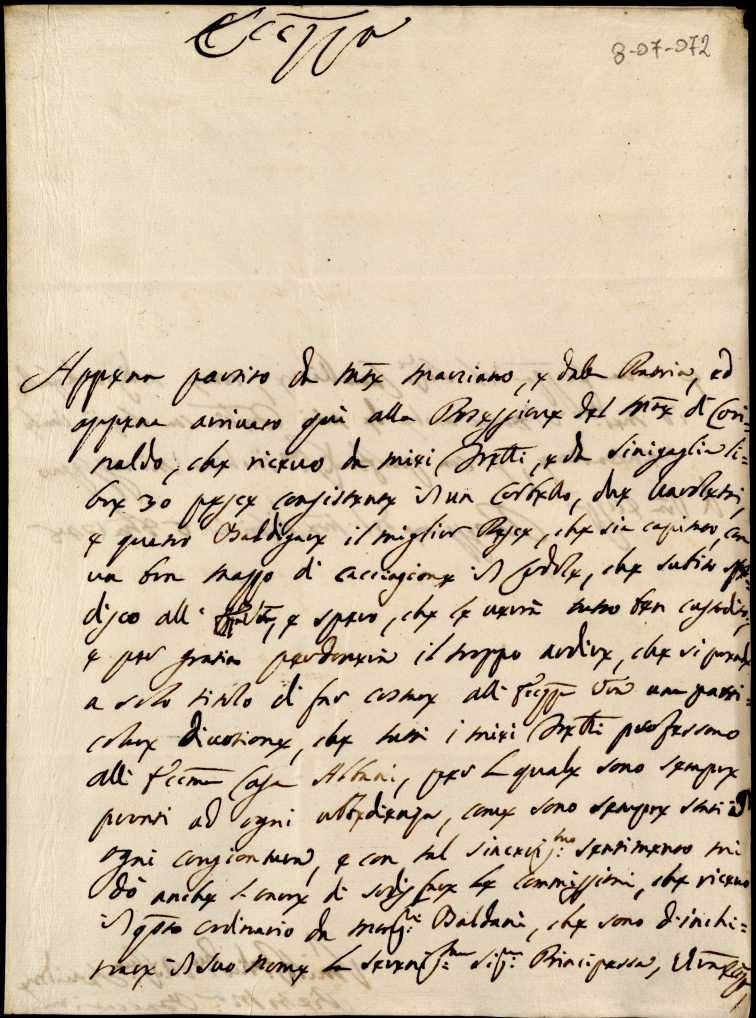 Ecc.za
8-07-072
Appena partito da Mte Marciano, e dalla Patria, ed
appena arrivato qui alla Protezzione del Mte di Cori=
naldo, che ricevo da miei Frelli, e da Sinigaglia li=
bre 30 pesce consistente in un Corbello, due
e quatro il miglior Pesce, che sia capitato, con
un bon mazzo di cacciagione in che subito spe=
disco all' e spero, che le verrà tutto ben custodito,
e per grazia perdonerà il troppo ardire, che si prende
a solo titolo di far costare all' Ecc.za Vra una parti=
colare divotione, che tutti i miei Frelli professano
all' Ecc.ma Casa Albani, per la quale sono sempre
pronti ad ogni ubbedienza, come sono sempre stati in
ogni congiontura, e con tal sincerissimo sentimento mi
dò anche l'onore di sodisfare le commissioni, che ricevo
in qsto ordinario da Baldani, che sono d'inchi=
nare in suo nome la Sereniss.ma Sig.ra Principessa,